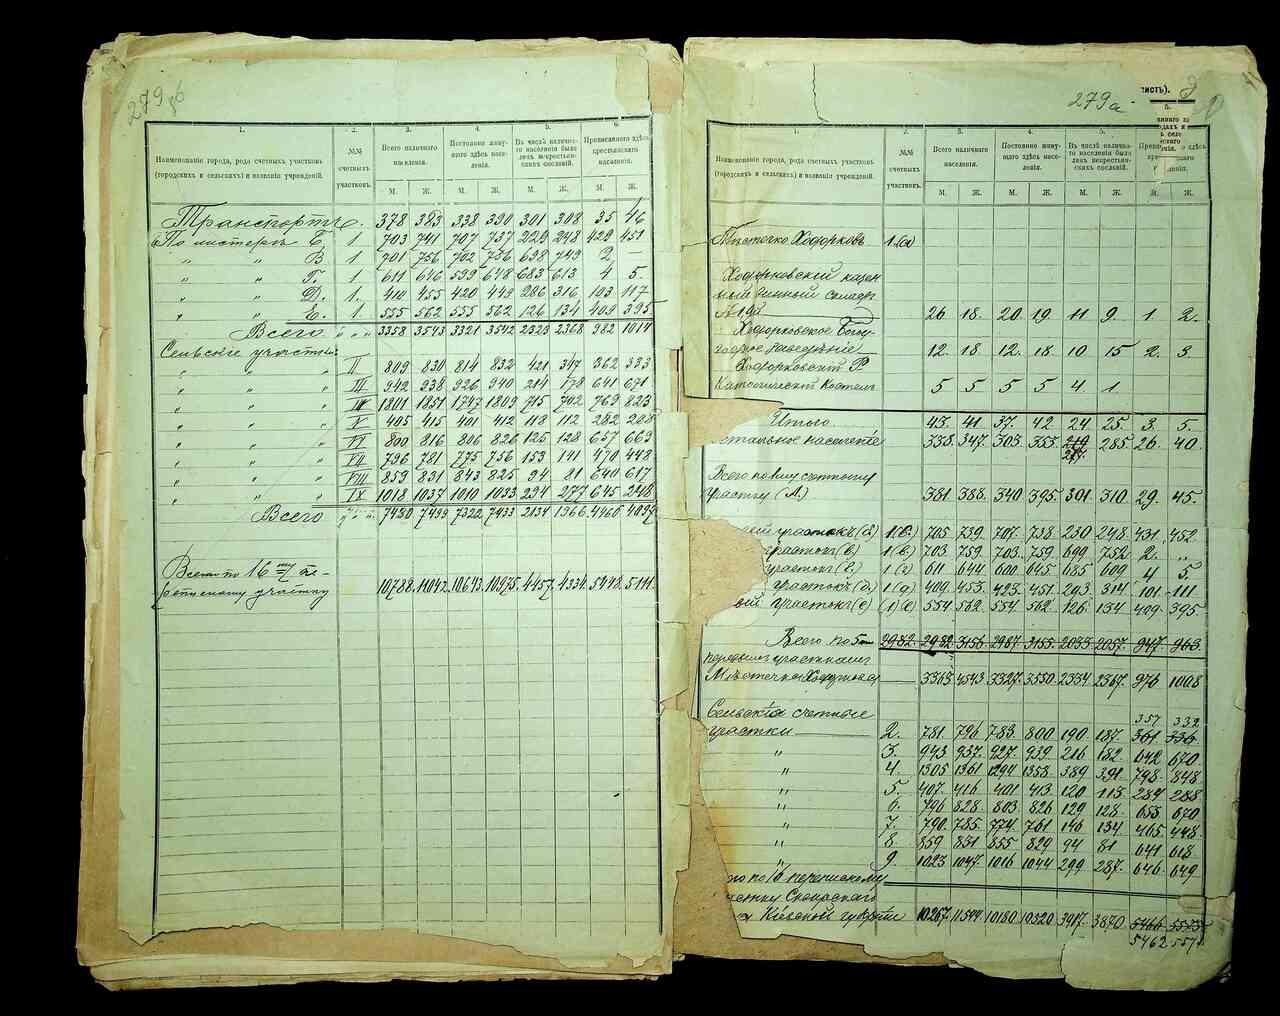 279б
1.
2.
3.
4.
5.
6.
Наименованіе города, рода счетныхъ участковъ
(городскихъ и сельскихъ) и названія учрежденій.
№№
счетныхъ
участковъ.
Всего наличнаго
населенія.
Постоянно живу-
щаго здѣсь насе-
ленія.
Въ числѣ налично-
го населенія было
лицъ некрестьян-
скихъ сословій.
Приписаннаго здѣсь
крестьянскаго
населенія.
М. Ж. М. Ж. М. Ж. М. Ж.
Транспортъ 378 383 338 390 301 308 35 46
По Б. 1. 703 741 707 737 229 248 429 451
" " В 1 701 756 702 756 698 749 2 —
" " Г. 1 611 646 599 648 683 613 4 5.
" " Д. 1. 410 455 420 449 286 316 103 117
" " Е. 1 555 562 555 562 126 134 409 395
Всего " " " 3358 3543 3321 3542 2323 2368 982 1014
Сельскіе участки
" " " II 809 830 814 832 421 347 362 333
" " " III 942 938 926 940 214 178 641 671
" " " IV 1801 1851 1747 1809 715 702 769 823
" " " V 405 415 401 412 118 112 282 288
" " " VI 800 816 806 826 125 128 657 669
" " " VII 796 781 775 756 153 141 470 448
" " " VIII 859 831 843 825 94 81 640 617
" " " IX 1018 1037 1010 1033 294 277 645 248
Всего 7430 7499 7322 7433 2134 1966 4466 4097
Всего по 16 му пе-
реписному участку 10788. 11042. 10643. 10975. 4457. 4334. 5448. 5111.
279а
листъ).
1.
2.
3.
4.
5.
Наименованіе города, рода счетныхъ участковъ
(городскихъ и сельскихъ) и названія учрежденій.
№№
счетныхъ
участковъ.
Всего наличнаго
населенія.
Постоянно живу-
щаго здѣсь насе-
ленія.
Въ числѣ налично-
го населенія было
лицъ некрестьян-
скихъ сословій.
М. Ж. М. Ж. М. Ж. М. Ж.
Мѣстечко Ходорковъ 1.(а)
Ходорковскій казен
ный винный складъ
26 18. 20. 19 11 9. 1 2.
Ходорковское Бого-
угодное заведеніе 12. 18. 12. 18. 10 15 2. 3.
Ходорковскій Р
Католическій Костелъ 5 5 5 5 4 1.
Итого 43. 41. 37. 42 24 25 3 5.
стальное населеніе 338. 347. 303. 353 277. 285. 26. 40.
Всего по 1му счетному
участку (А.) 381. 388. 340. 395 301 310 29. 45.
вый участокъ (б) 1(б.) 705 739. 707. 738 230 248 431 452
участокъ (в) 1(в.) 703 759. 703. 759. 699 752 2. "
участокъ (г.) 1(г) 611 644 600. 645 685 609 4 5.
участокъ (д.) 1(д) 409. 453. 423. 451 293 314 101. 111
вый участокъ (е) 1(е) 554 562. 554 562. 126 134 409. 395
Всего по 5ти 2982. 2982. 3156 2987. 3155. 2033. 2057. 947. 963.
первымъ участкамъ
Мѣстечка Ходоркова — 3363 4543 3327. 3550. 2334 2367. 976 1008
Сельскія счетные 357 332
участки — 2. 781 796 783. 800 190 187. 361 336
" 3. 943 937. 927. 939 216 182. 642 670
" 4. 1305 1361 1294 1353 389 391 798. 848
" 5. 407. 416 401 413 120 113 284 288
" 6. 796 828. 803 826 129 128. 653 670
" 7. 790. 785. 774. 761 146 134 465 448
8. 859 831 855 829 94 81 641 618
" 9. 1023 1047. 1016 1044 299 287. 646 649
по 16 переписному
участку Сквирскаго
Кіевской губерніи 10267. 11549. 10180 10320 3917. 3870 5466 5573
5462 557